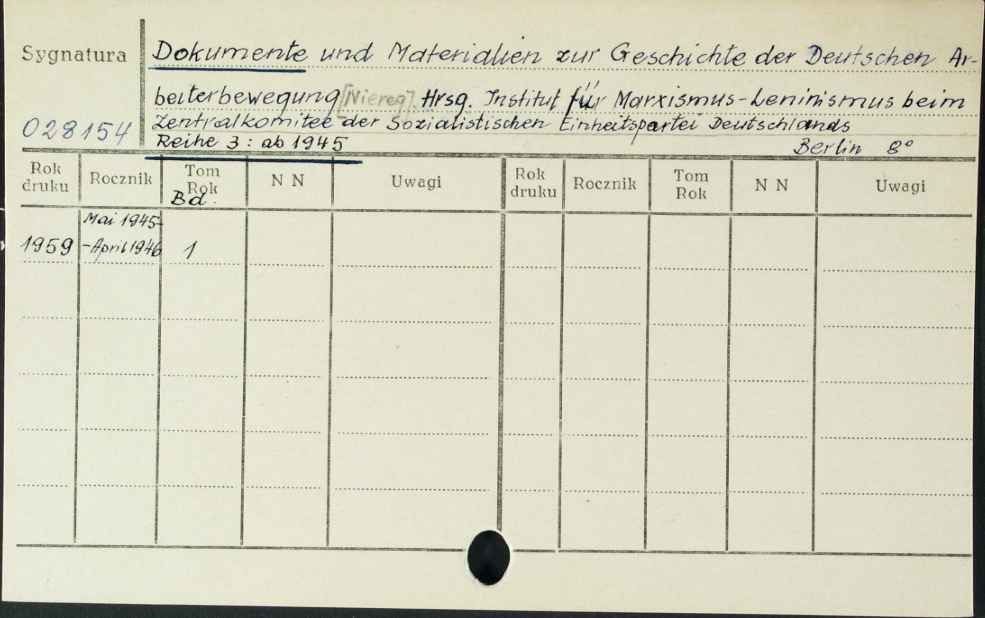 Sygnatura
Dokumente und Materialien zur Geschichte der Deutschen Ar-
beiterbewegung [Niereg]. Hrsg. Institut für Marxismus-Leninismus beim
028154
Zentralkomitee der Sozialistischen Einheitspartei Deutschlands
Reihe 3: ab 1945 Berlin 8°
Rok druku Rocznik Tom Rok N N Uwagi Rok druku Rocznik Tom Rok N N Uwagi
Bd.
Mai 1945-
1959 -April 1946 1